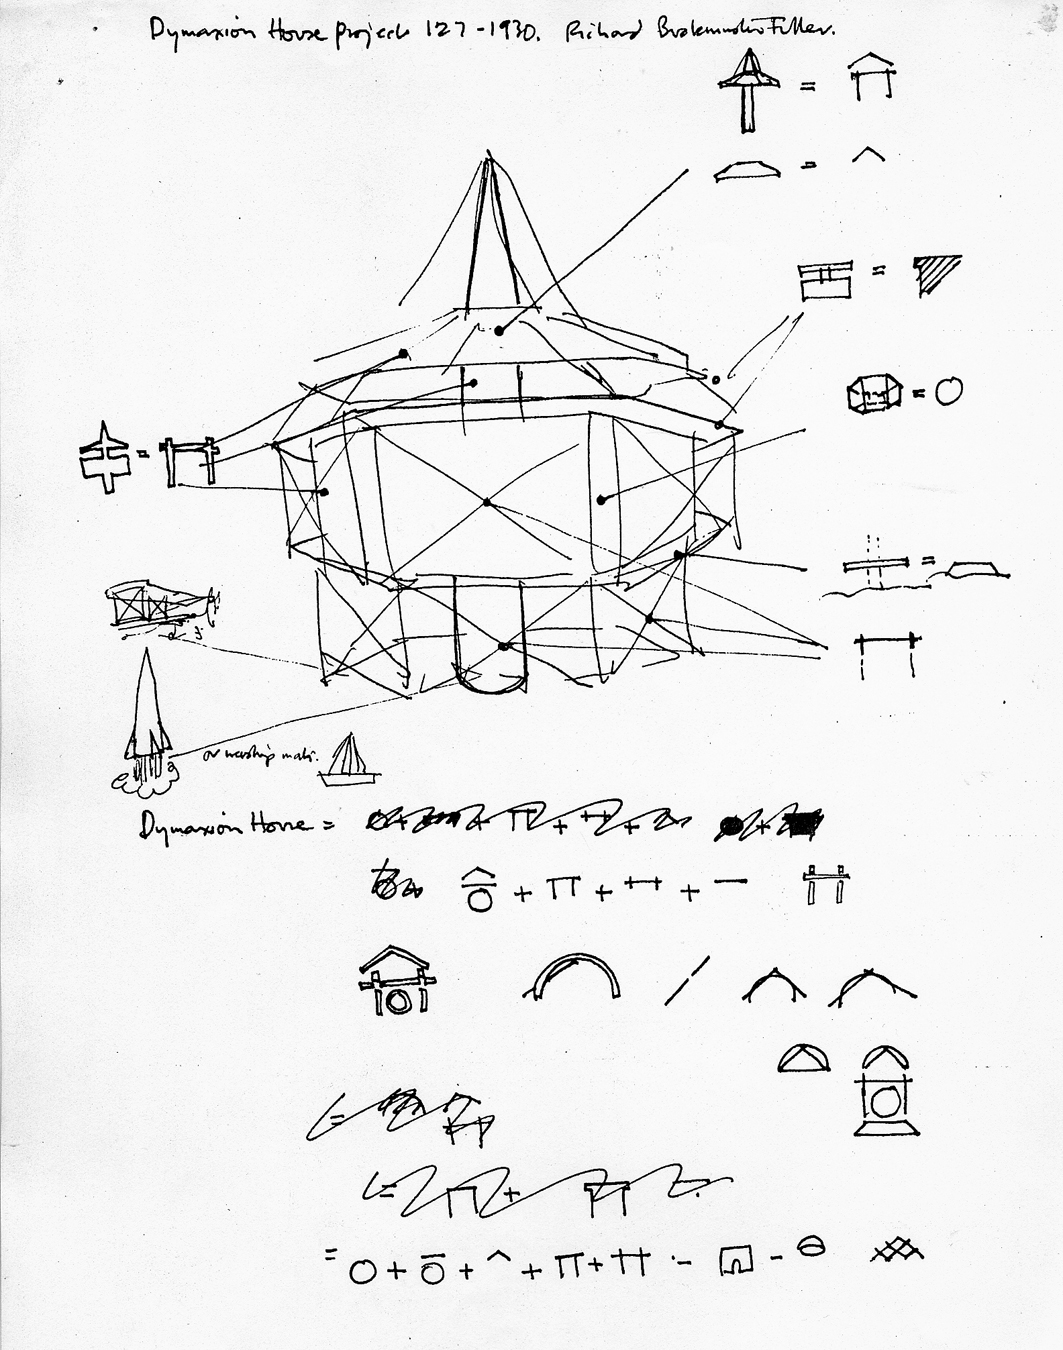 Dymaxion House Project 127-1930. Richard Buckminster Fuller.
3'
or warship mats.
Dymaxion House =